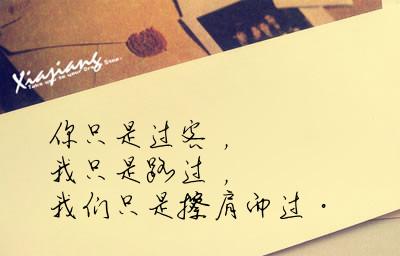 Xiajiang
你只是过客，
我只是路过，
我们只是擦肩而过．